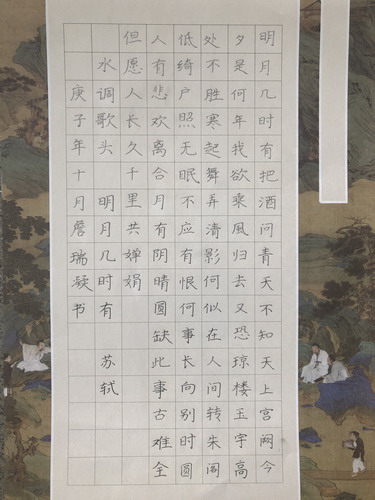 明月几时有把酒问青天不知天上宫阙今
夕是何年我欲乘風归去又恐琼楼玉宇高
处不胜寒起舞弄清影何似在人间转朱阁
低绮户照无眠不应有恨何事长向别时圆
人有悲欢离合月有阴晴圆缺此事古难全
但愿人长久千里共婵娟
水调歌头 明月几时有 苏轼
庚子年十月詹瑞凝书